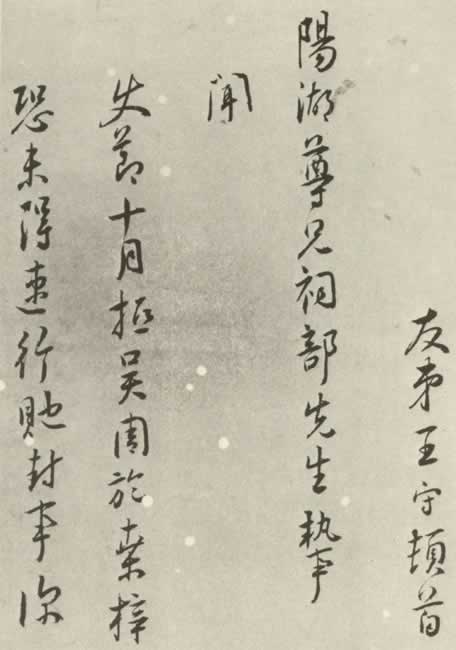 友弟王守頓首
陽湖尊兄祠部先生執事
聞
節十月抵吳於桑梓
恐未得速行貤封事深